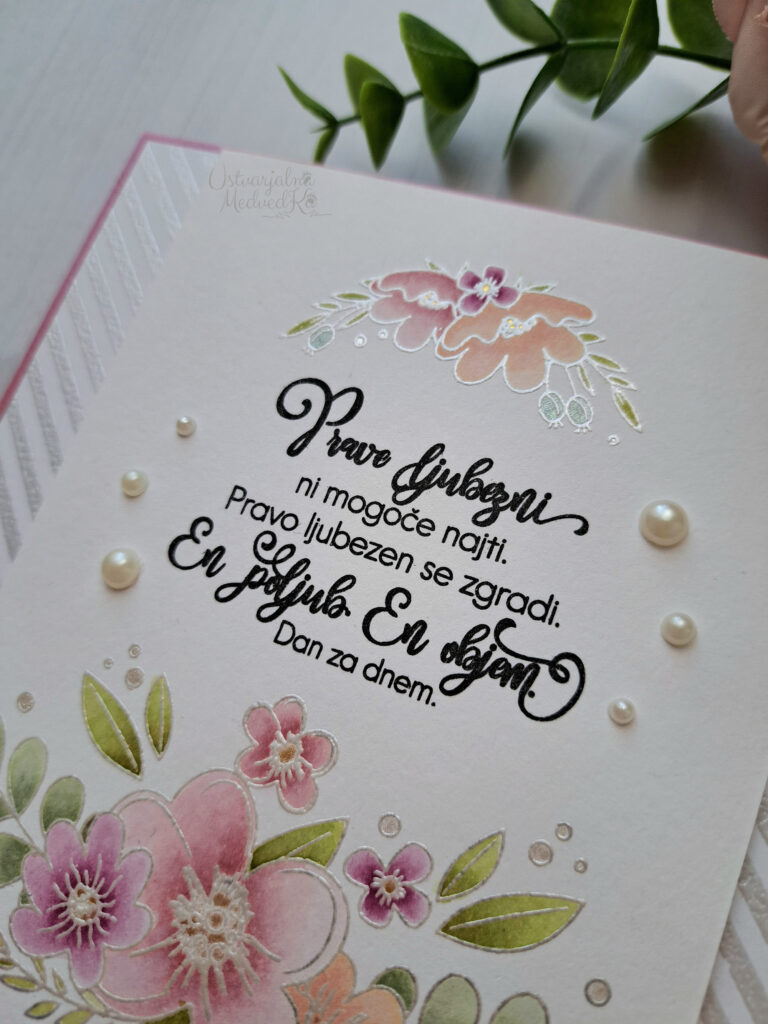 Ustvarjalna
MedvedKa
Prave ljubezni
ni mogoče najti.
Pravo ljubezen se zgradi.
En poljub. En objem.
Dan za dnem.